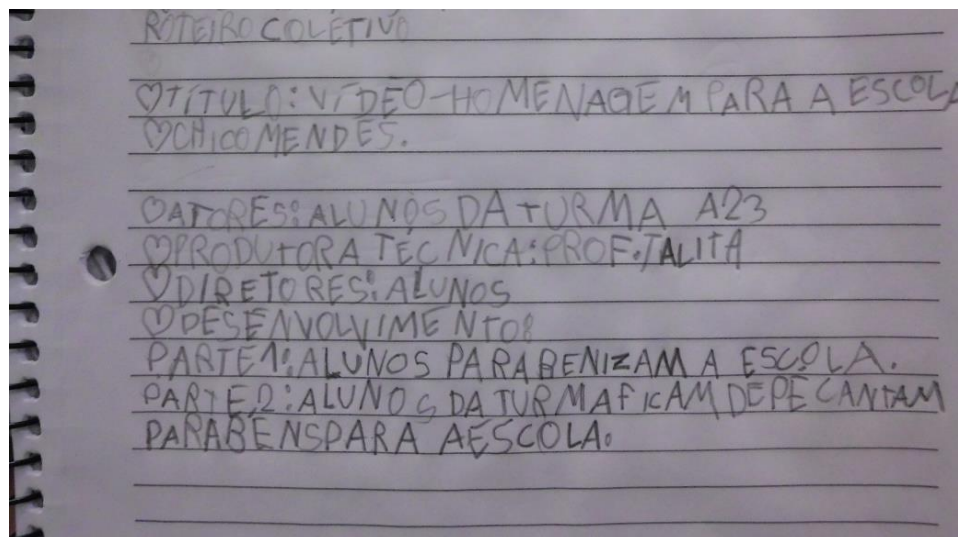 ROTEIRO COLETIVO
♡TÍTULO: VÍDEO-HOMENAGEM PARA A ESCOLA
♡CHICO MENDES.
♡ATORES: ALUNOS DA TURMA A23
♡PRODUTORA TÉCNICA: PROF. TALITA
♡DIRETORES: ALUNOS
♡DESENVOLVIMENTO:
PARTE 1: ALUNOS PARABENIZAM A ESCOLA.
PARTE 2: ALUNOS DA TURMA FICAM DE PÉ CANTAM
PARABÉNS PARA A ESCOLA.